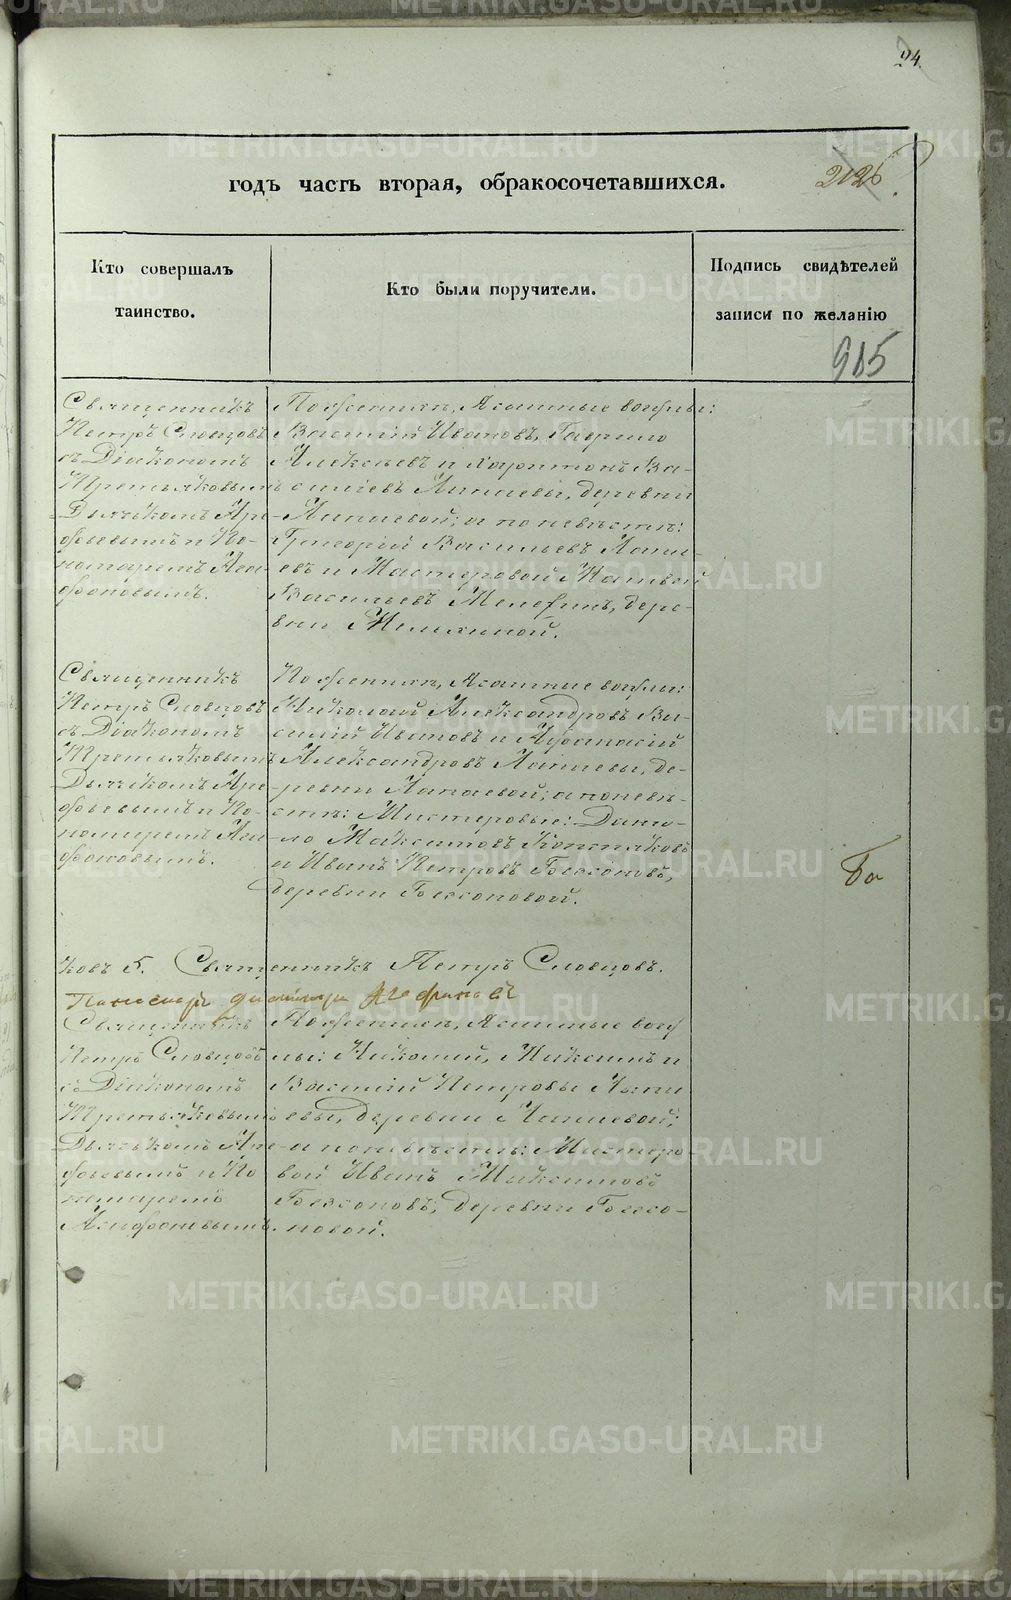 94
годъ часть вторая, обракосочетавшихся.
2126
Кто совершалъ таинство.
Кто были поручители.
Подпись свидѣтелей записи по желанію
915
Священникъ
Петръ Словцовъ
съ Діакономъ
Третьяковымъ
Дьячкомъ Аре-
фьевымъ и По-
номаремъ Ага-
фоновымъ.
По женихѣ, Ясашные вогулы:
Василій Ивановъ, Гаврило
Алексѣевъ и Харитонъ Ва-
сильевъ Лапаевы, деревни
Лапаевой; а по невѣстѣ:
Григорій Васильевъ Лапа-
евъ и Мастеровой Матвей
Васильевъ Мелехинъ, дере-
вни Мелехиной.
Священникъ
Петръ Словцовъ
съ Діакономъ
Третьяковымъ
Дьячкомъ Аре-
фьевымъ и По-
номаремъ Ага-
фоновымъ.
По женихѣ, Ясашные вогулы:
Николай Александровъ Ва-
силій Ивановъ и Афанасій
Александровъ Лапаевы, де-
ревни Лапаевой; а по невѣ-
стѣ: Мастеровые: Дани-
ло Максимовъ
и Иванъ Петровъ
деревни
ковъ 5. Священникъ Петръ Словцовъ.
Пономарь Агафоновъ
Священникъ
Петръ Словцовъ
съ Діакономъ
Третьяковымъ
Дьячкомъ Аре-
фьевымъ и По
номаремъ
Агафоновымъ.
По женихѣ, Ясашные вогу
лы: Николай, Максимъ и
Василій Петровы Лапа
евы, деревни Лапаевой;
а по невѣстѣ: Мастеро-
вой Иванъ Максимовъ
деревни
новой.
METRIKI.GASO-URAL.RU